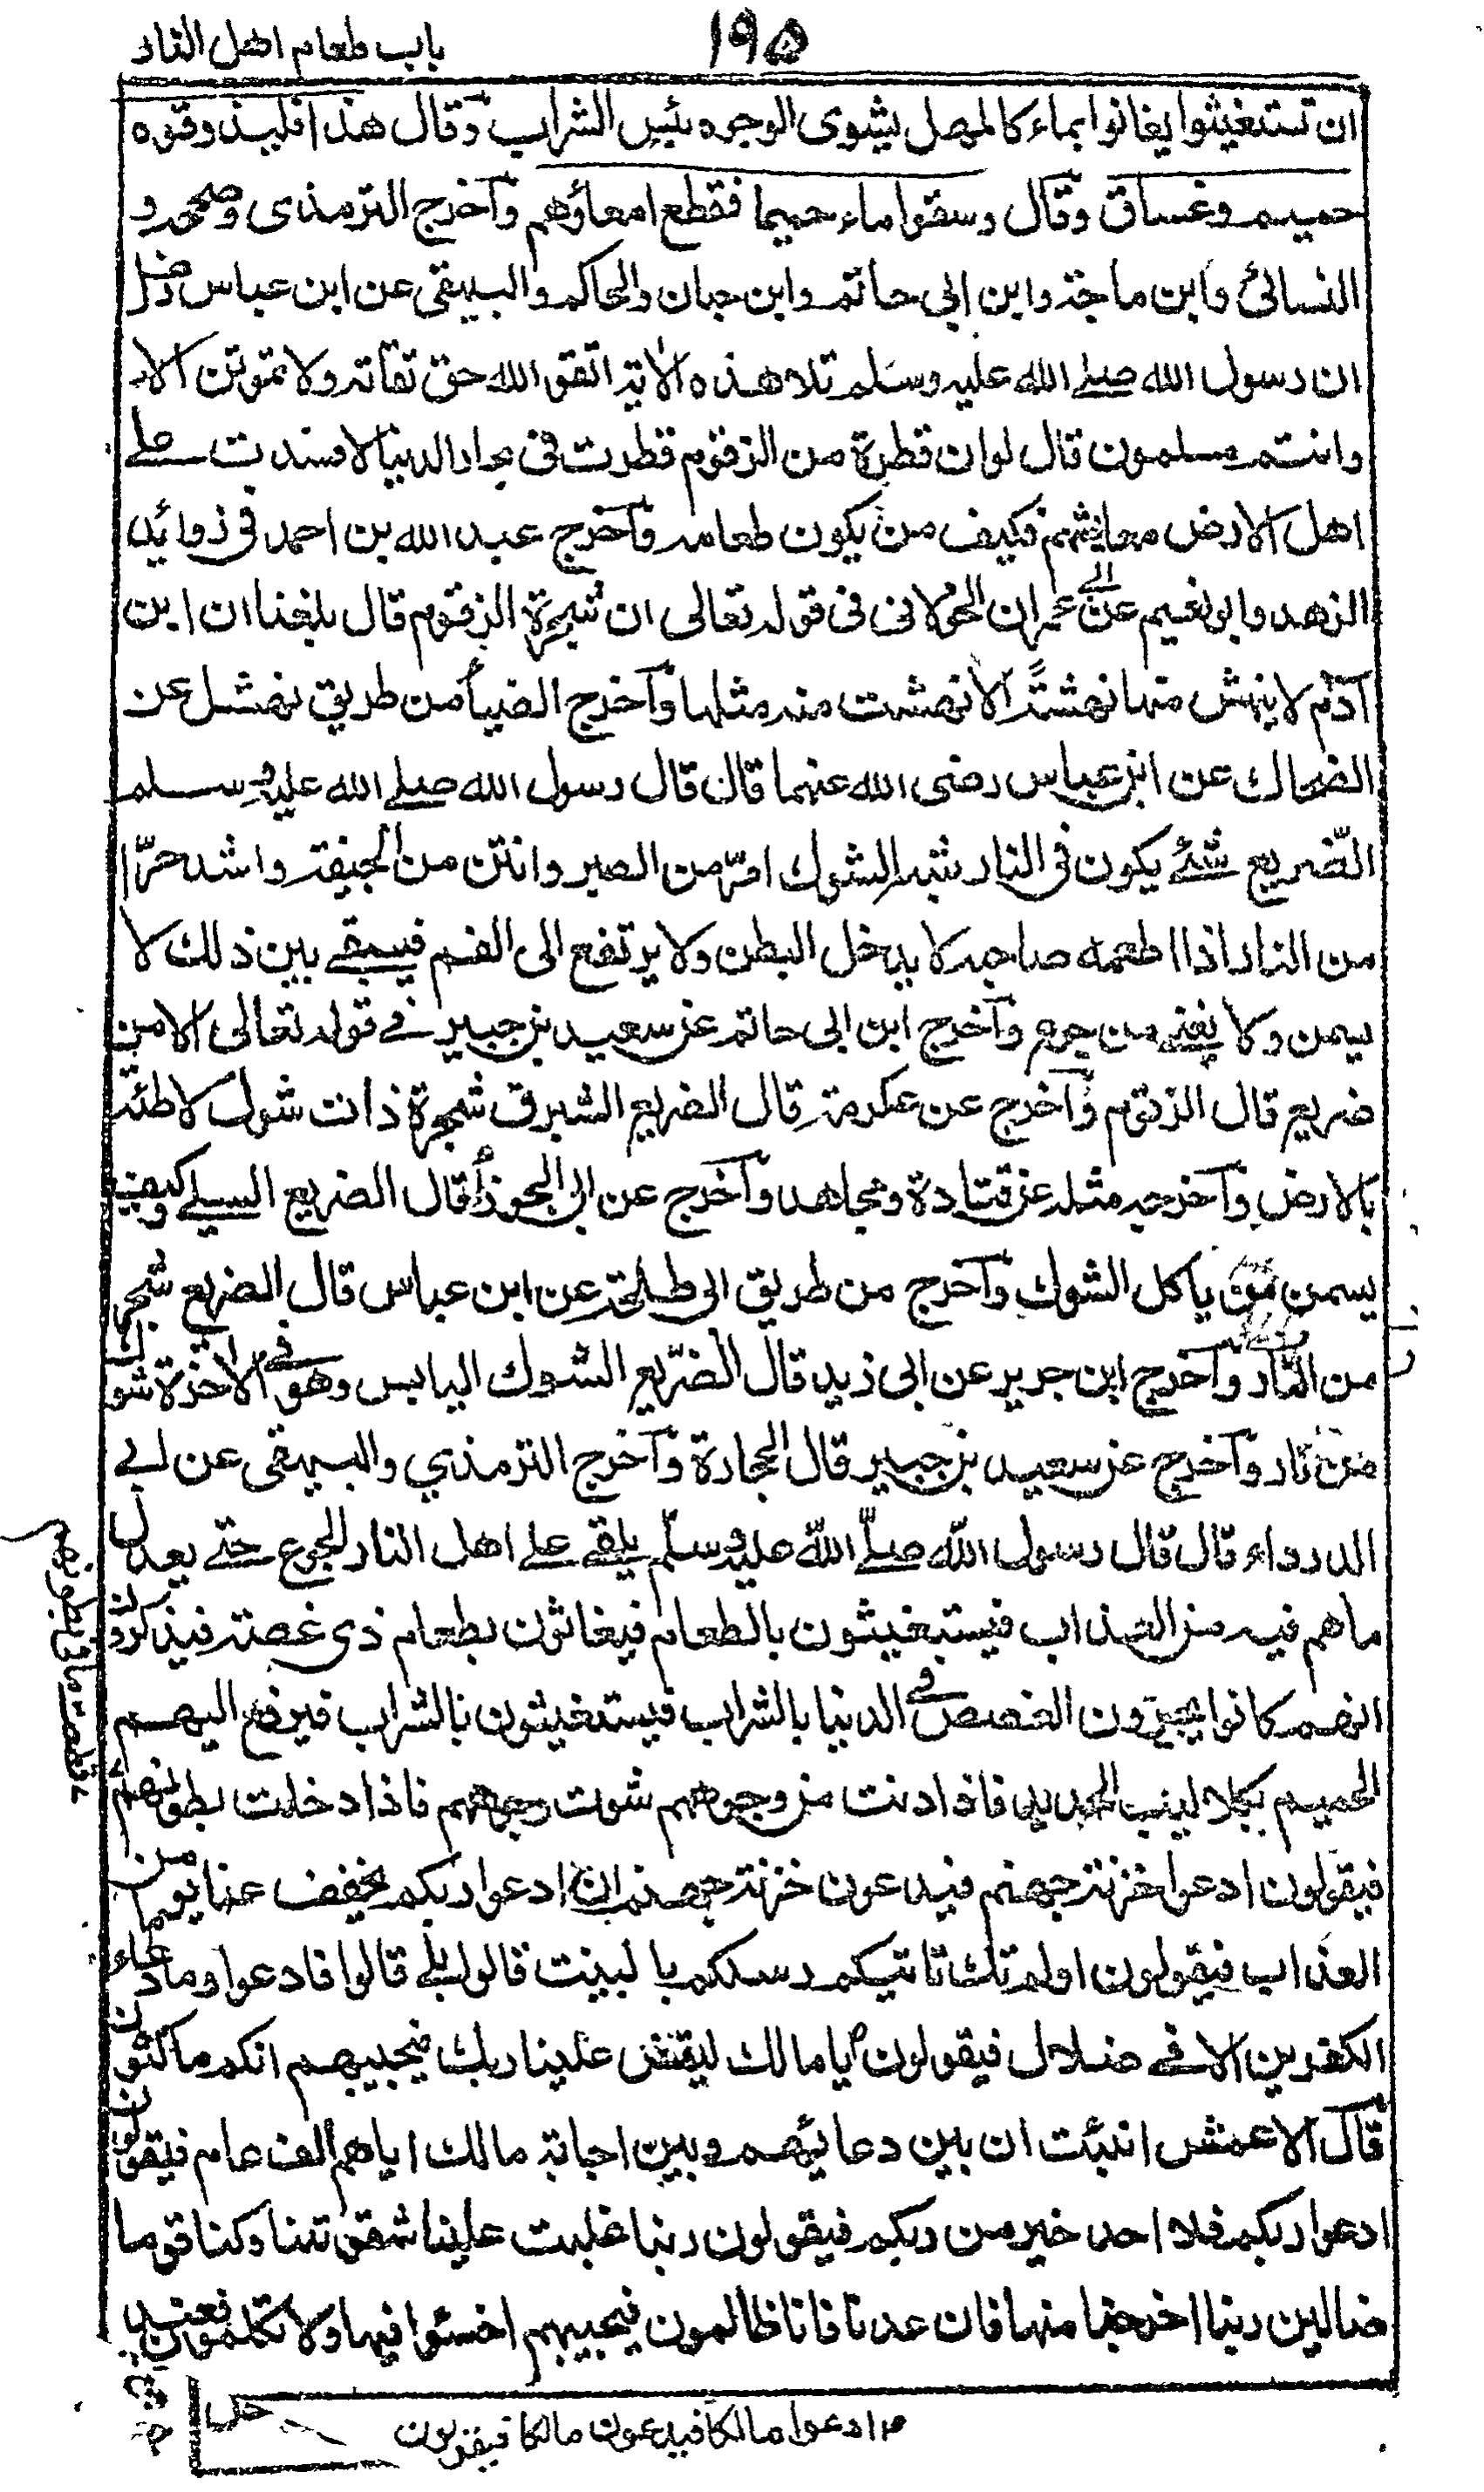 باب طعام اهل النار
١٩٥
ان تستغيثوا يغاثوا بماء كالمهل يشوى الوجوه بئس الشراب وقال هذا فليذوقوه
حميم وغساق وقال وسقوا ماء حميما فقطع امعاؤهم وآخرج الترمذى وصححه و
النسائى وابن ماجة وابن ابى حاتم وابن حبان والحاكم والبيهقى عن ابن عباس رض
ان رسول الله صلے الله عليه وسلم تلا هذه الاية اتقو الله حق تقاته ولا تموتن الا
وانتم مسلمون قال لو ان قطرة من الزقوم قطرت فى بحار الدنيا لافسدت علے
اهل الارض معايشهم فكيف من يكون طعامه وآخرج عبد الله بن احمد فى زوائد
الزهد وابو نعيم عن ابے عمران الخولانى فى قوله تعالى ان شجرة الزقوم قال بلغنا ان ابن
آدم لا ينهش منها نهشة الا نهشت منه مثلها وآخرج الضياء من طريق نهشل عن
الضحاك عن ابن عباس رضى الله عنهما قال قال رسول الله صلے الله عليه وسلم
الضريع شئے يكون فى النار شبه الشوك امر من الصبر وانتن من الجيفة واشد حرا
من النار اذا اطعمه صاحبه لا يدخل البطن ولا يرتفع الى الفم فيبقے بين ذلك لا
يسمن ولا يغنے من جوع وآخرج ابن ابى حاتم عن سعيد بن جبير فے قوله تعالى الا من
ضريع قال الزقوم وآخرج عن عكرمة قال الضريع الشبرق شجرة ذات شوك لاطئة
بالارض وآخرجه مثله عن قتادة ومجاهد وآخرج عن ابى الجوزاء قال الضريع السلے وكيف
يسمن من ياكل الشوك وآخرج من طريق ابى طلحة عن ابن عباس قال الضريع شجر
من النار وآخرج ابن جرير عن ابى زيد قال الضريع الشوك اليابس وهو فے الاخرة شوك
من نار وآخرج عن سعيد بن جبير قال الحجارة وآخرج الترمذي والبيهقى عن ابے
الدرداء قال قال رسول الله صلے الله عليه وسلم يلقے علے اهل النار الجوع حتے يعدل
ما هم فيه من العذاب فيستغيثون بالطعام فيغاثون بطعام ذى غصة فيذكرون
انهم كانوا يجيزون الغصص فے الدنيا بالشراب فيستغيثون بالشراب فيرفع اليهم
الحميم بكلاليب الحديد فاذا دنت من وجوههم شوت وجوههم فاذا دخلت بطونهم
قطعت ما فى بطونهم
فيقولون ادعوا خزنة جهنم فيدعون خزنة جهنم ان ادعوا ربكم يخفف عنا يوما من
العذاب فيقولون اولم تك تاتيكم رسلكم بالبينت قالوا بلے قالوا فادعوا وما دعاء
الكفرين الا فے ضلال فيقولون يا مالك ليقض علينا ربك فيجيبهم انكم ماكثون
قال الاعمش انبئت ان بين دعائهم وبين اجابة مالك اياهم الف عام فيقولون
ادعوا ربكم فلا احد خير من ربكم فيقولون ربنا غلبت علينا شقوتنا وكنا قوما
ضالين ربنا اخرجنا منها فان عدنا فانا ظالمون فيجيبهم اخسئوا فيها ولا تكلمون فعند
ادعوا مالكا فيدعون مالكا فيقولون